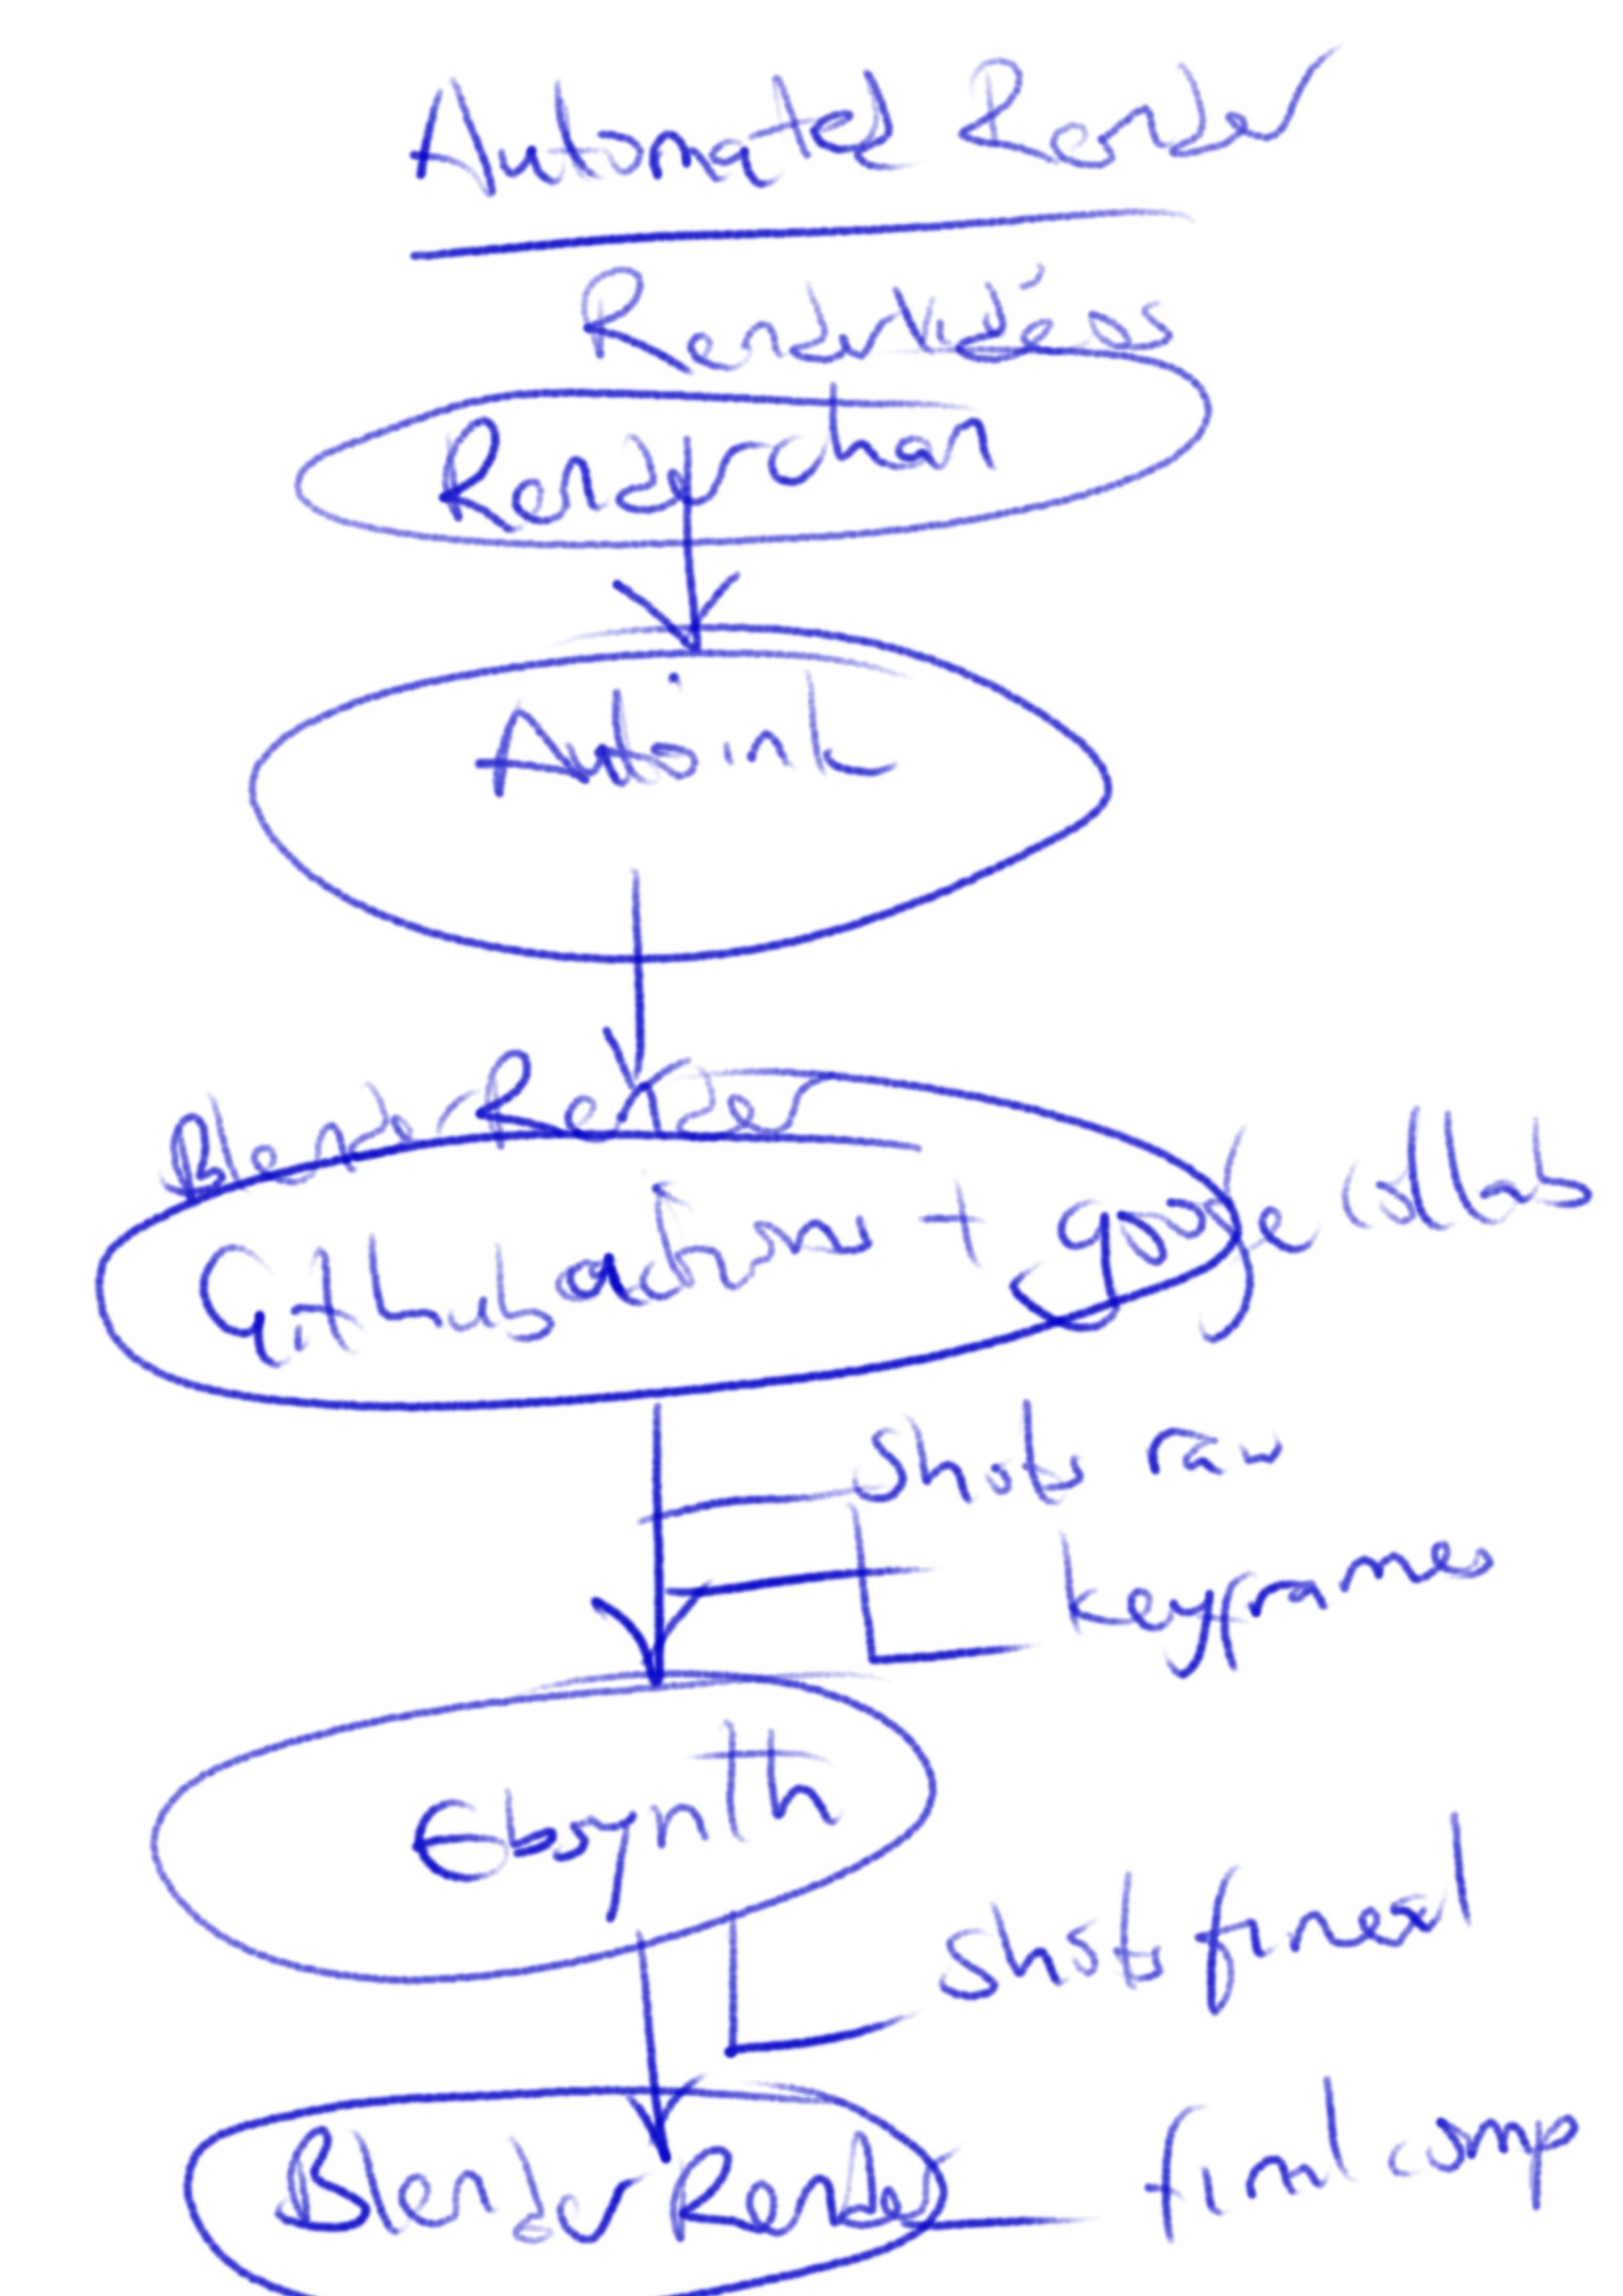 Automated Render
Render Vidéos
Renderchan
Autoink
Blender Render
Github actions + google collab
Shots raw
keyframes
Ebsynth
Shots final
Blender Render
final comp